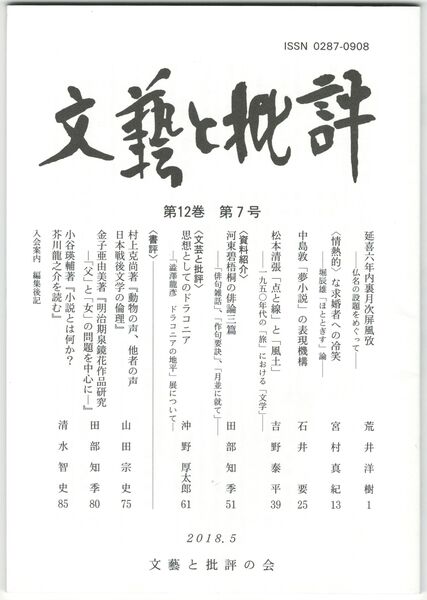 ISSN 0287-0908
文藝と批評
第12巻 第7号
延喜六年内裏月次屏風攷
――仏名の設題をめぐって―― 荒井洋樹 1
〈情熱的〉な求婚者への冷笑
――堀辰雄「ほととぎす」論―― 宮村真紀 13
中島敦「夢小説」の表現機構 石井要 25
松本清張「点と線」と「風土」
――一九五〇年代の「旅」における「文学」―― 吉野泰平 39
〈資料紹介〉
河東碧梧桐の俳論三篇
――「俳句雑話」、「作句要訣」、「月並に就て」―― 田部知季 51
〈文芸と批評〉
思想としてのドラコニア
――「澁澤龍彦 ドラコニアの地平」展について―― 沖野厚太郎 61
〈書評〉
村上克尚著『動物の声、他者の声
日本戦後文学の倫理』 山田宗史 75
金子亜由美著『明治期泉鏡花作品研究
――「父」と「女」の問題を中心に―』 田部知季 80
小谷瑛輔著『小説とは何か?
芥川龍之介を読む』 清水智史 85
入会案内 編集後記
2018.5
文藝と批評の会